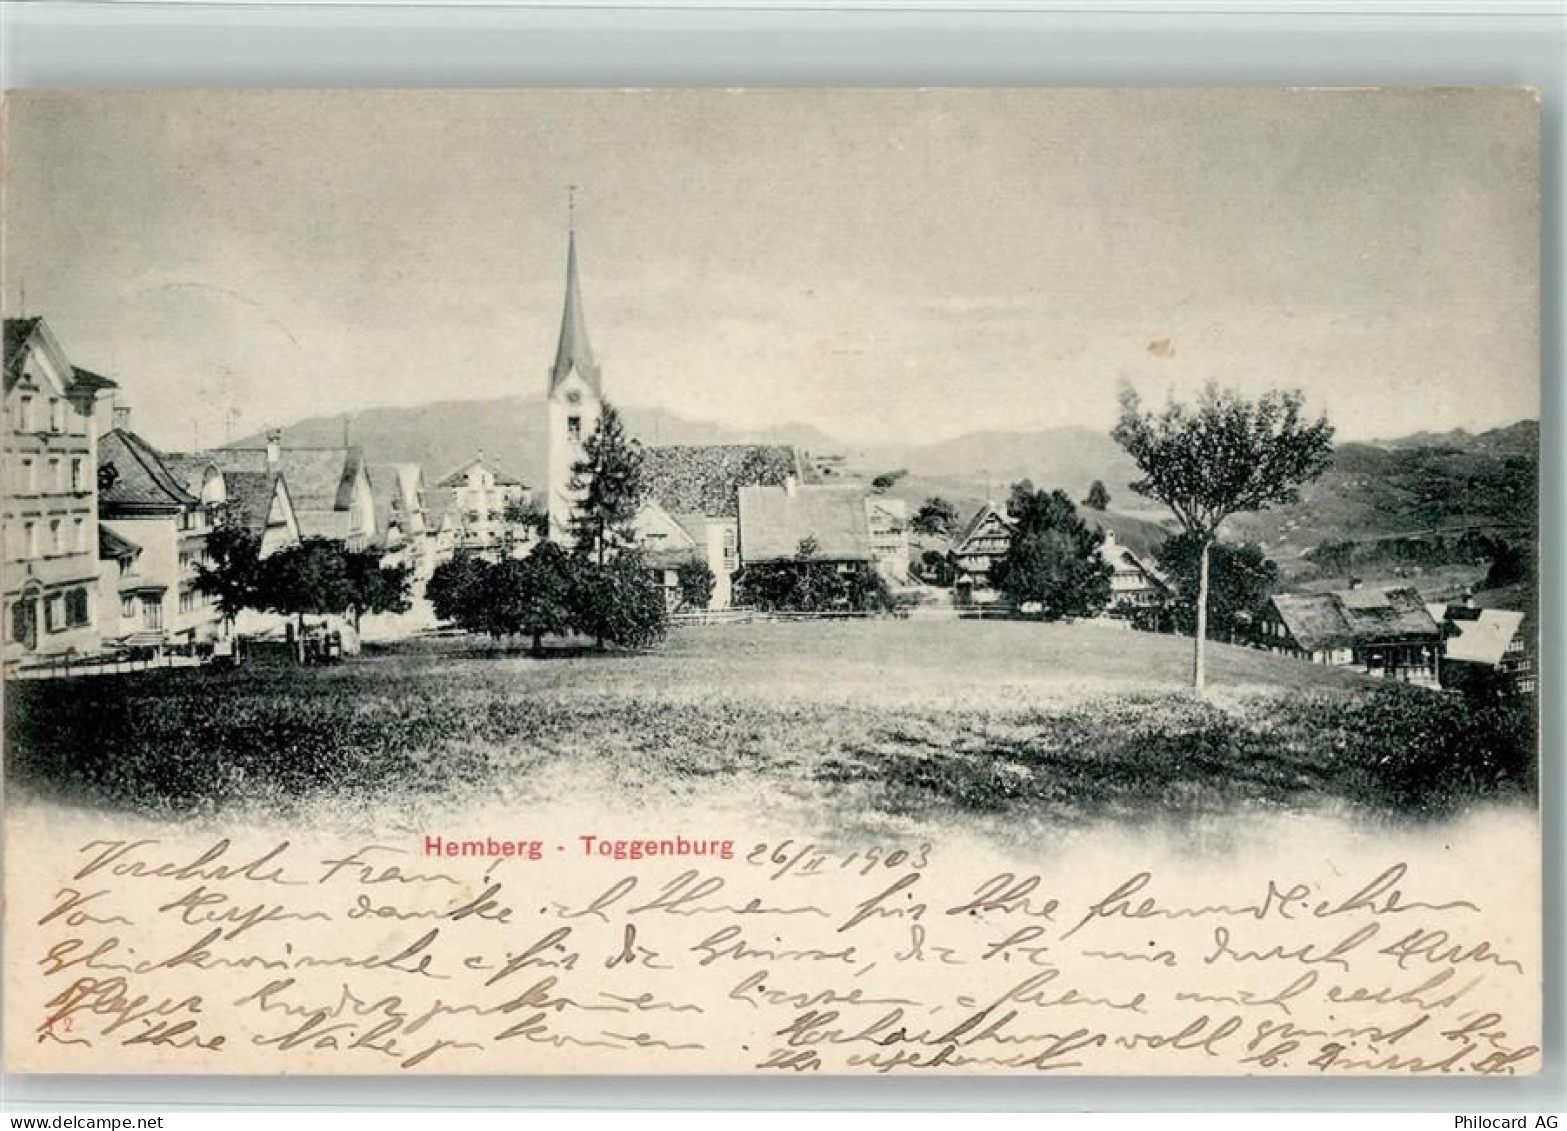 Hemberg - Toggenburg 26/II 1903
Verehrte Frau!
Von Herzen danke ich Ihnen für Ihre freundlichen
Glückwünsche & für die Grüsse, die Sie mir durch Herrn
Pfleger zukommen liessen, & freue mich recht,
in Ihre Nähe zu kommen. Hochachtungsvoll grüsst Sie
Ihr ergebener
T 2
www.delcampe.net
Philocard AG